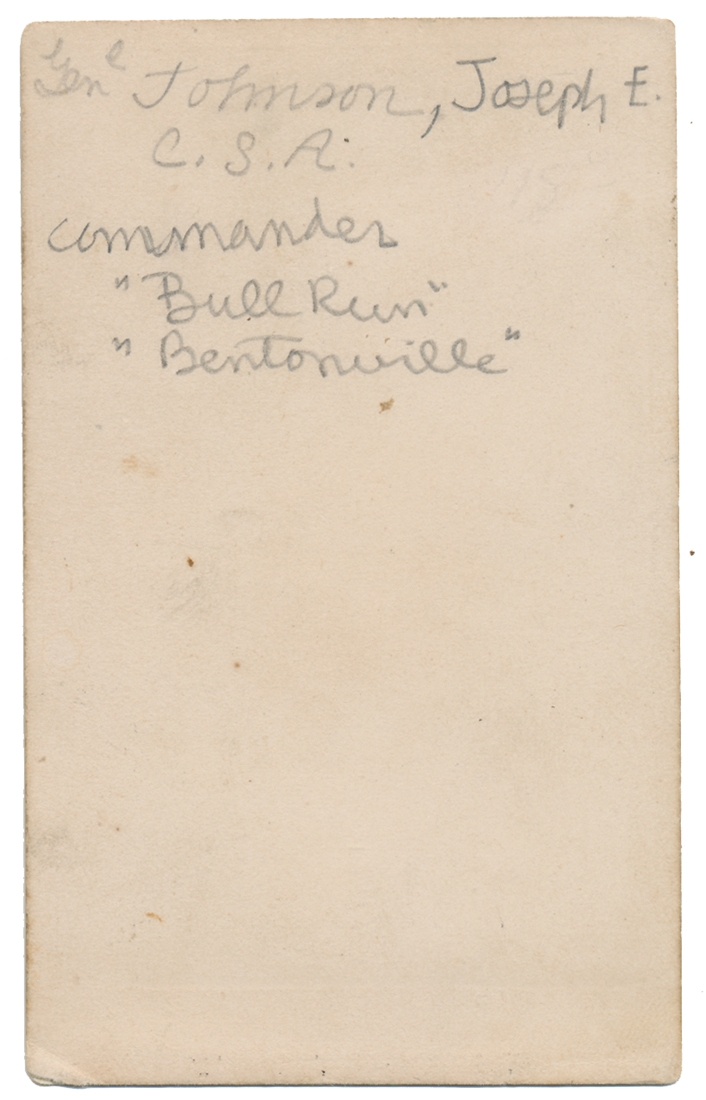 Genl Johnson, Joseph E.
C. S. A.
commander
"Bull Run"
"Bentonville"